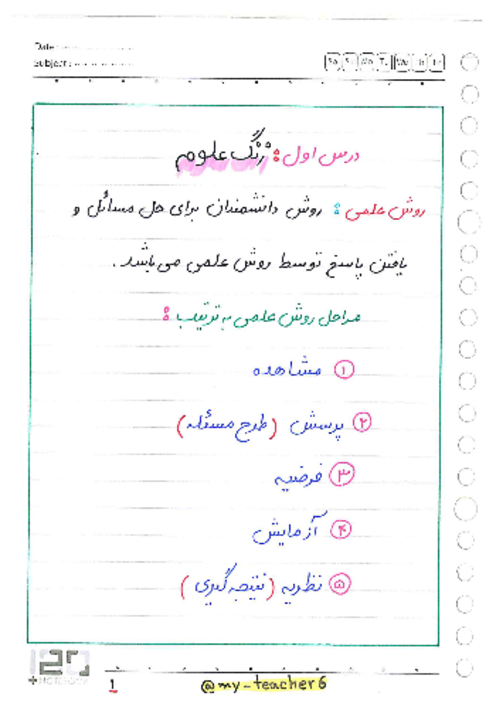 Date:
Subject:
درس اول: زنگ علوم
روش علمی: روش دانشمندان برای حل مسائل و
یافتن پاسخ توسط روش علمی می باشد.
مراحل روش علمی به ترتیب:
۱ مشاهده
۲ پرسش (طرح مسئله)
۳ فرضیه
۴ آزمایش
۵ نظریه (نتیجه گیری)
1
@my-teacher6